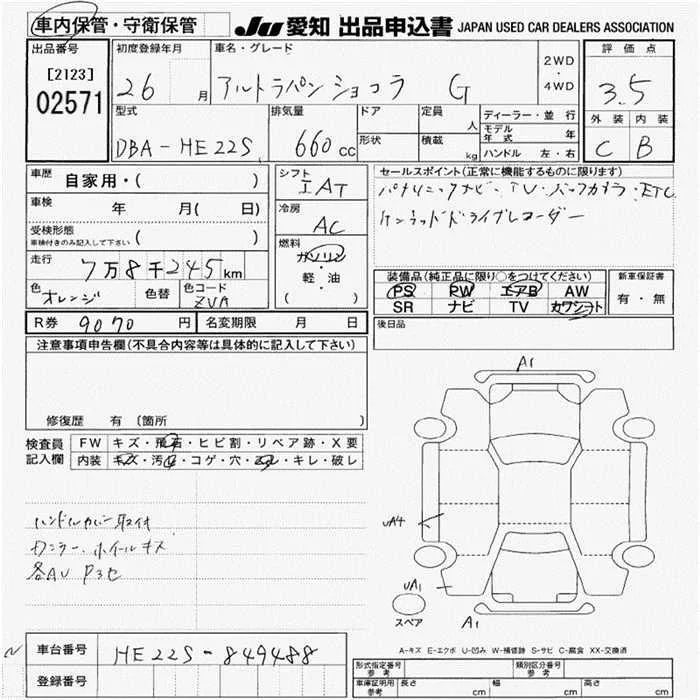 車内保管・守衛保管 JU 愛知 出品申込書 JAPAN USED CAR DEALERS ASSOCIATION
出品番号 初度登録年月 車名・グレード 2WD・4WD 評価点
[2123] 02571 26 月 アルトラパン ショコラ G 3.5
型式 排気量 ドア 定員 人 ディーラー・並行 外装 内装
DBA-HE22S 660 cc 形状 積載 kg モデル年式 年 C B
ハンドル 左・右
車歴 自家用・( ) シフト IAT セールスポイント(正常に機能するものに限ります)
パナソニックナビ・TV・バックカメラ・ETC
車検 年 月( 日) 冷房 AC
ケンウッドドライブレコーダー
受検形態 車検付きのみ記入して下さい ( )
燃料 ガソリン 軽・油 ( )
走行 7万8千245km
装備品(純正品に限り○をつけてください) 新車保証書
PS PW エアB AW 有・無
SR ナビ TV カワシート
色 オレンジ 色替 色コード ZVA
R券 9070 円 名変期限 月 日 後日品
注意事項申告欄(不具合内容等は具体的に記入して下さい)
修復歴 有 〔箇所 〕
検査員記入欄 FW キズ・飛石・ヒビ割・リペア跡・X要
内装 キズ・汚れ・コゲ・穴・スレ・キレ・破レ
A1
ハンドルカバー取付
ホイールキズ
各AU P3セ
UA4
UA1
A1
スペア
A-キズ E-エクボ U-凹み W-補修跡 S-サビ C-腐食 XX-交換済
車台番号 HE22S-849488
登録番号
形式指定番号 参考 類別区分番号 参考
車庫証明用 参考 長さ cm 幅 cm 高さ cm